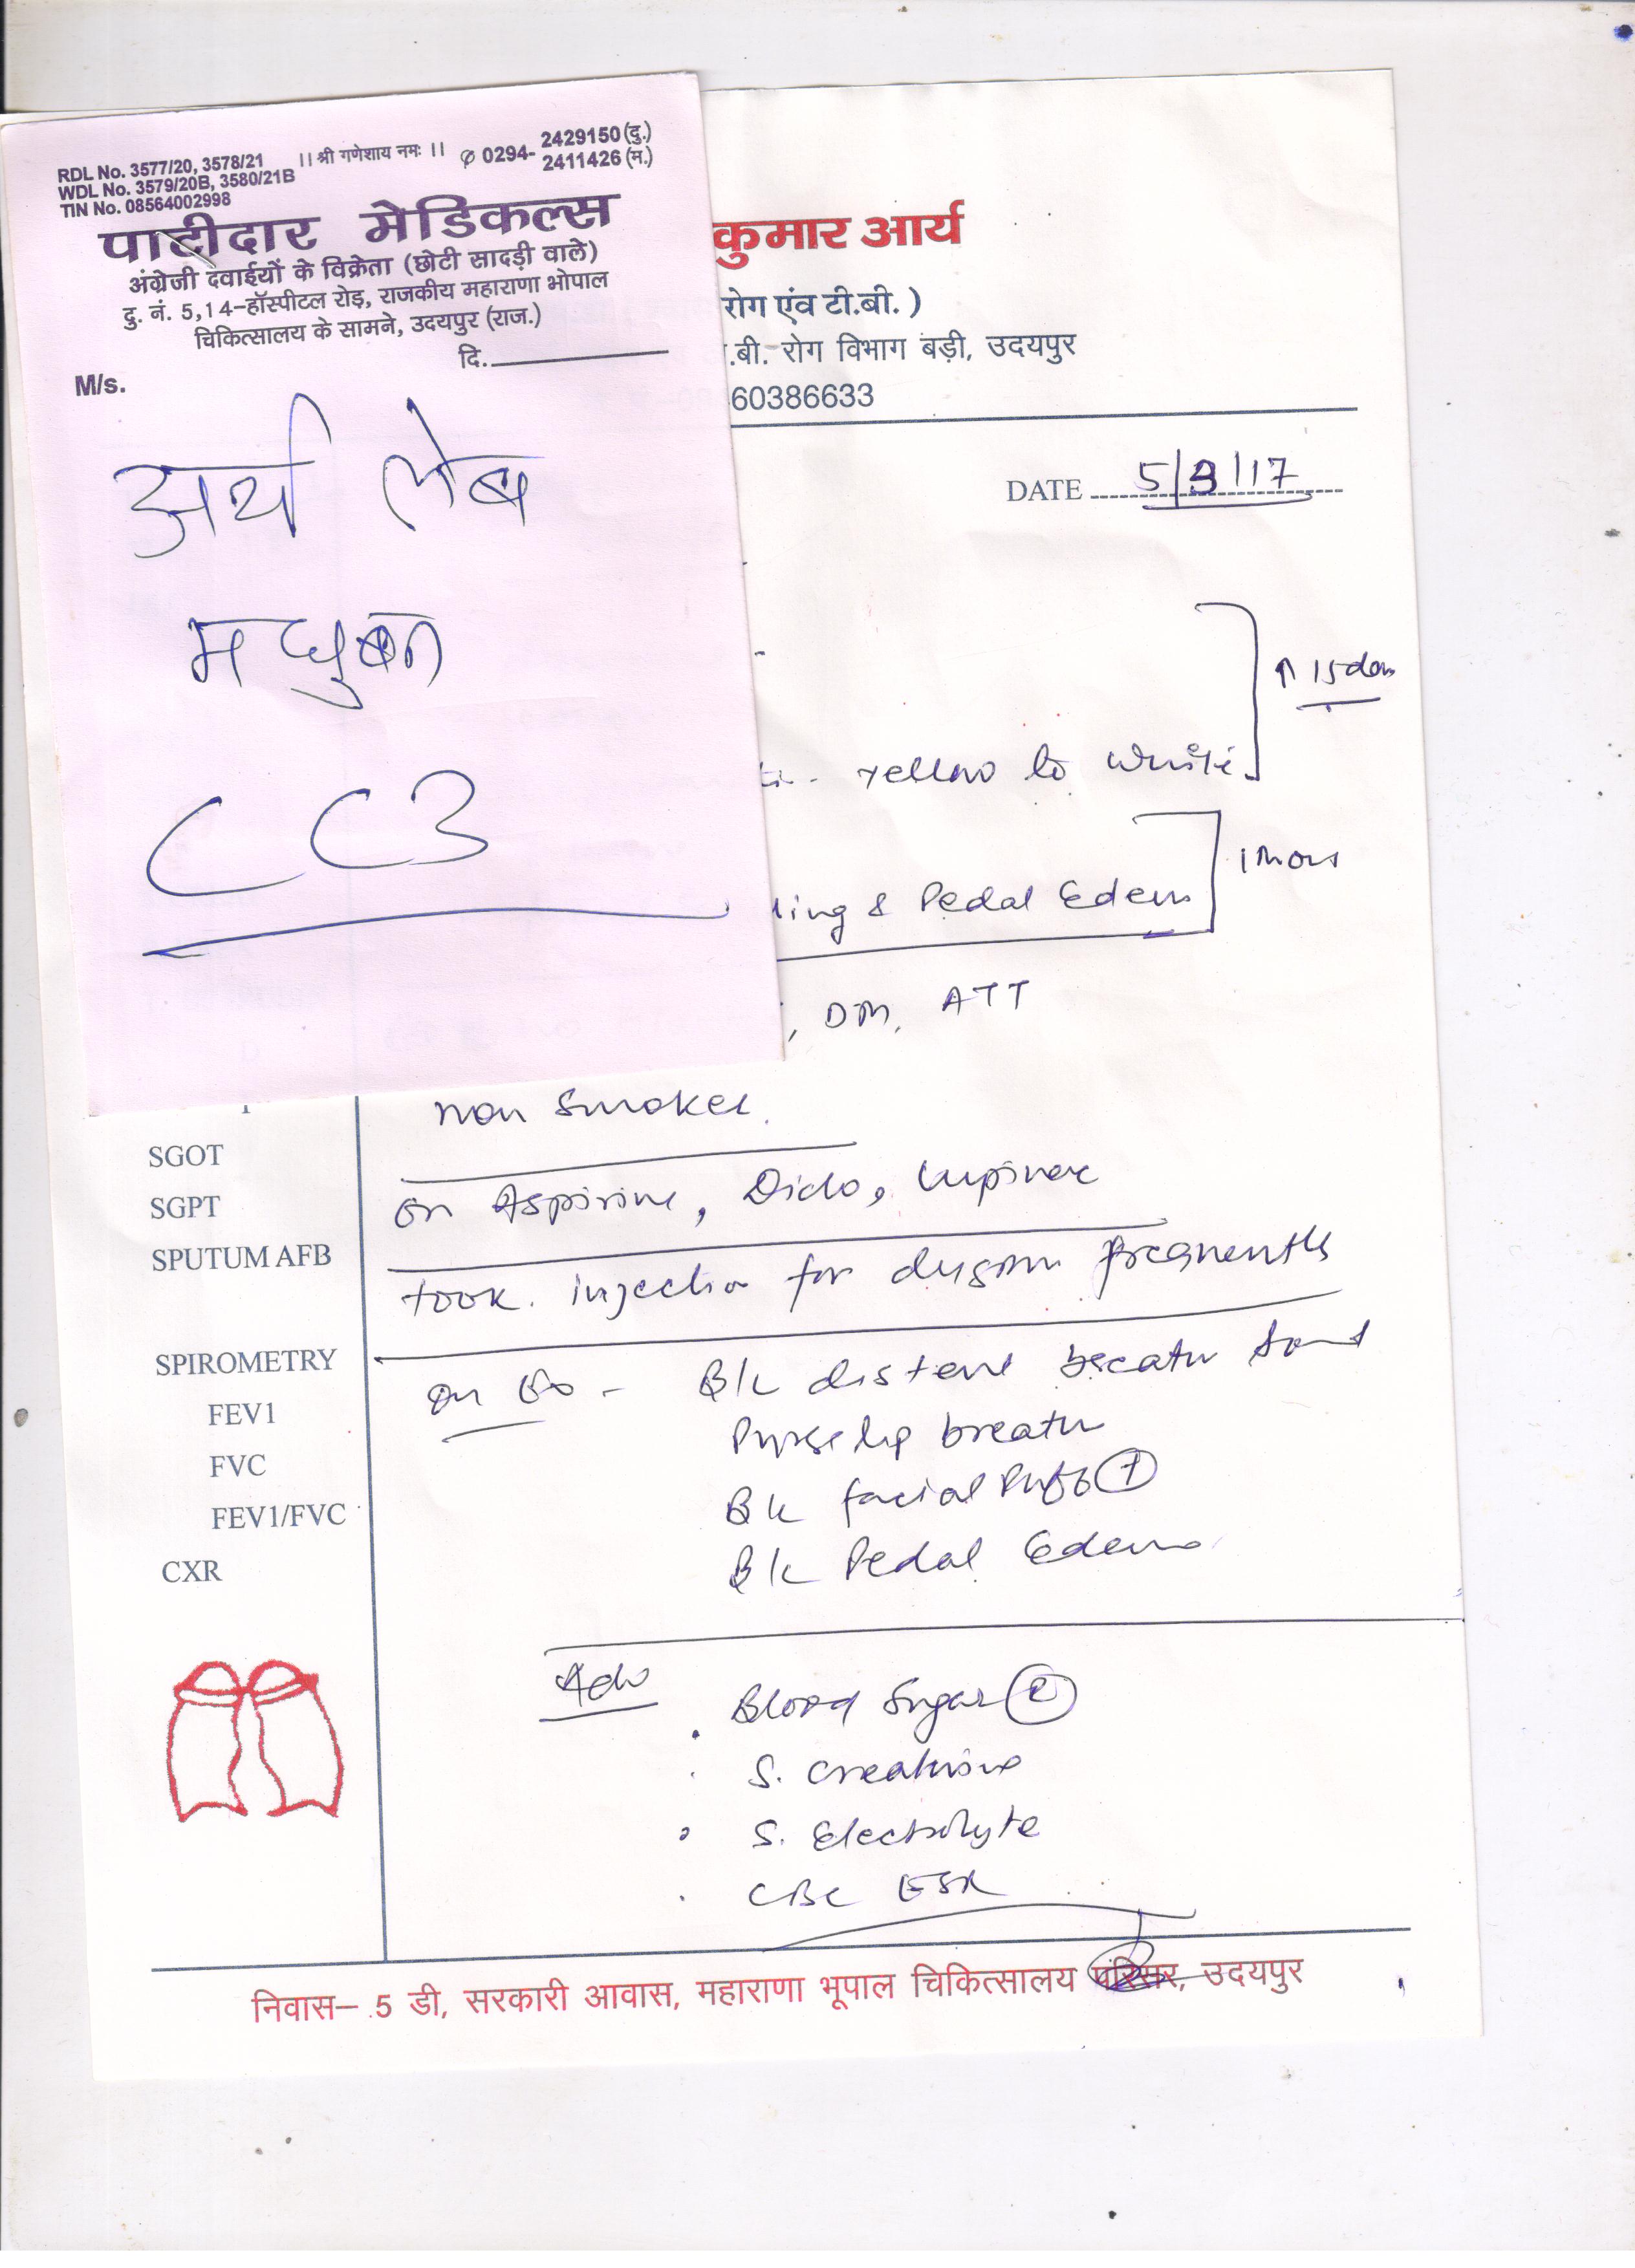 RDL No. 3577/20, 3578/21
WDL No. 3579/20B, 3580/21B
TIN No. 08564002998
।। श्री गणेशाय नमः ।।
✆ 0294- 2429150 (दु.)
2411426 (म.)
पाटीदार मेडिकल्स
अंग्रेजी दवाईयों के विक्रेता (छोटी सादड़ी वाले)
दु. नं. 5,14-हॉस्पीटल रोड़, राजकीय महाराणा भोपाल
चिकित्सालय के सामने, उदयपुर (राज.)
दि.
M/s.
अर्थ लेब
मधुबन
CC3
कुमार आर्य
रोग एंव टी.बी. )
.बी. रोग विभाग बड़ी, उदयपुर
60386633
DATE 5/3/17
↑ 15 days
yellow to white
1 mon
ling & Pedal Edema
, DM, ATT
non smoker.
SGOT
SGPT
SPUTUM AFB
SPIROMETRY
FEV1
FVC
FEV1/FVC
CXR
on Aspirine, Diclo,
took injection for frequently
B/L breath sound
Purse lip breath
B/L facial Puff +
B/L Pedal Edema
Adv
Blood Sugar
S. Creatinine
S. Electrolyte
CBC ESR
निवास– 5 डी, सरकारी आवास, महाराणा भूपाल चिकित्सालय परिसर, उदयपुर